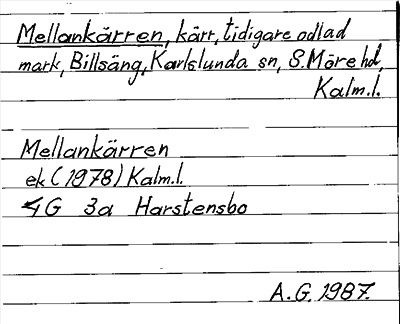 Mellankärren, kärr, tidigare odlad
mark, Billsäng, Karlslunda sn, S. Möre hd,
Kalm.l.
Mellankärren
ek (1978) Kalm.l.
4G 3a Harstensbo
A.G. 1987.